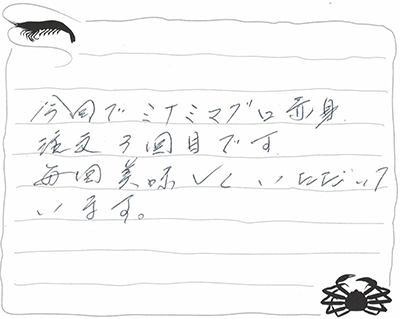 今回でミナミマグロ赤身
注文3回目です
毎回美味しくいただいて
います。